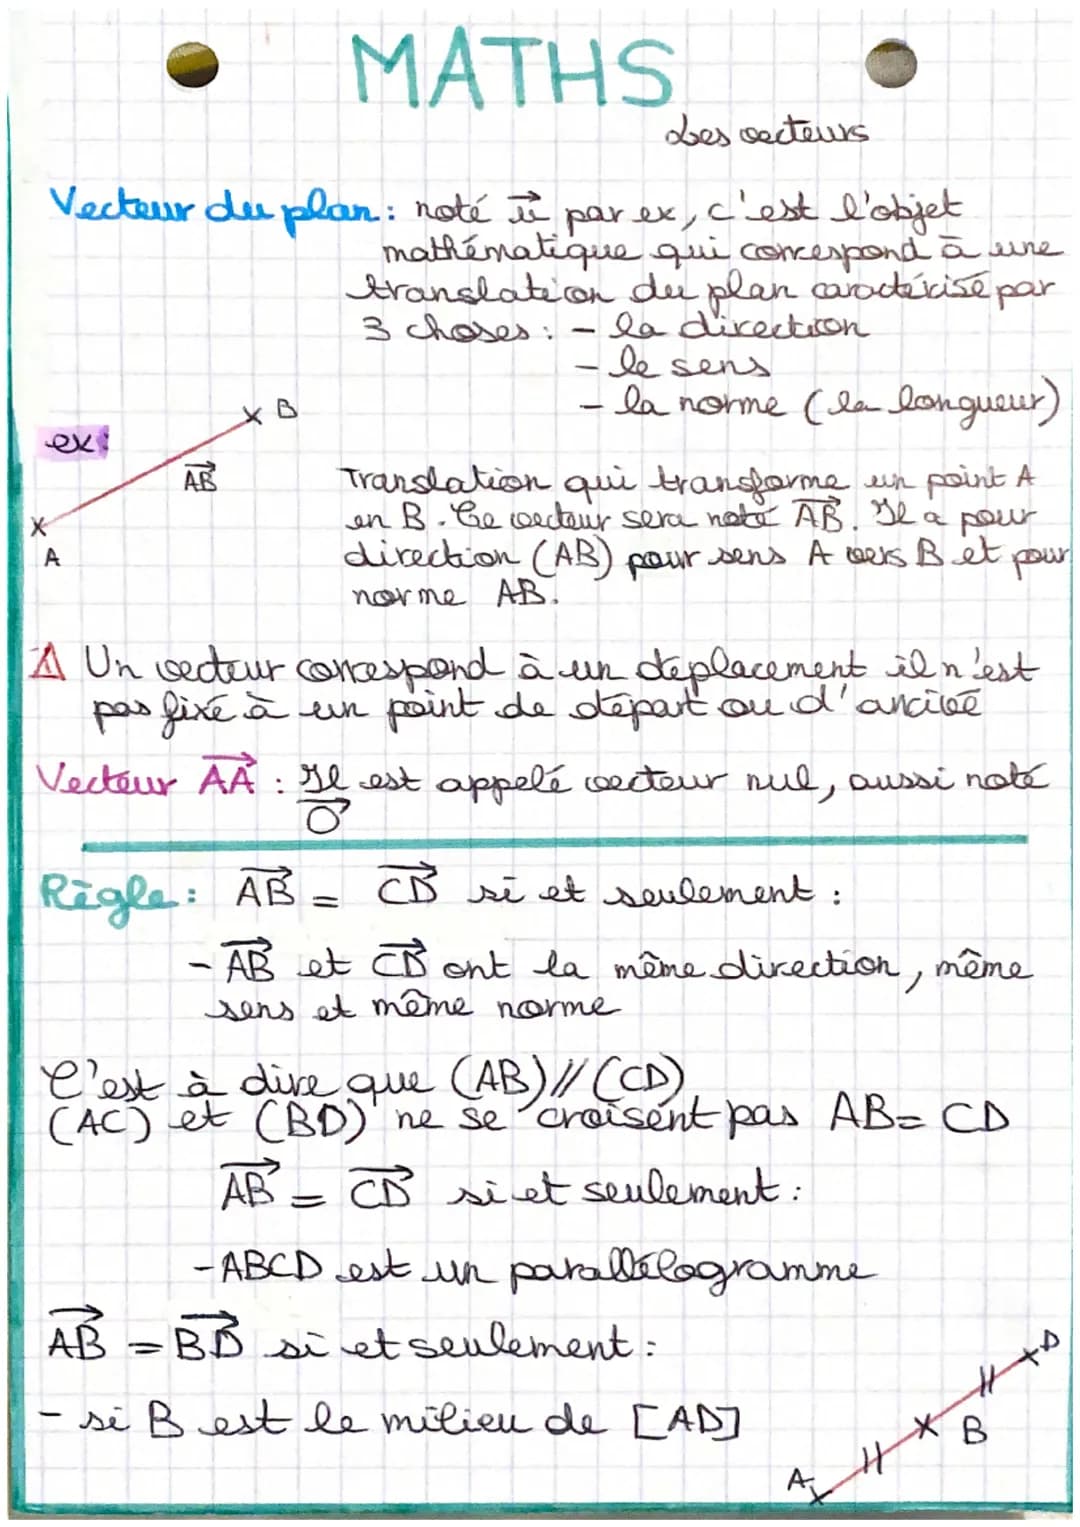 MATHS
Les vecteurs
Vecteur du plan : noté u⃗ par ex, c'est l'objet
mathématique qui correspond à une
translation du plan caractérisé par
3 choses : - la direction
- le sens
- la norme (la longueur)
ex:
A
B
A⃗B⃗
Translation qui transforme un point A
en B. Ce vecteur sera noté A⃗B⃗. Il a pour
direction (AB) pour sens A vers B et pour
norme AB.
⚠ Un vecteur correspond à un déplacement il n'est
pas fixé à un point de départ ou d'arrivée
Vecteur A⃗A⃗ : Il est appelé vecteur nul, aussi noté
0⃗
Règle : A⃗B⃗ = C⃗D⃗ si et seulement :
- A⃗B⃗ et C⃗D⃗ ont la même direction, même
sens et même norme
C'est à dire que (AB)//(CD)
(AC) et (BD) ne se croisent pas AB = CD
A⃗B⃗ = C⃗D⃗ si et seulement :
- ABCD est un parallélogramme
A⃗B⃗ = B⃗D⃗ si et seulement :
- si B est le milieu de [AD]
A
B
D